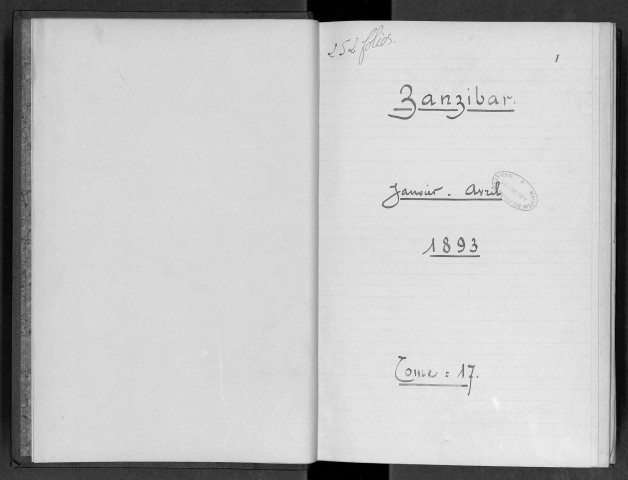 252 folios.
1
Zanzibar.
Janvier - Avril
1893
Tome = 17.